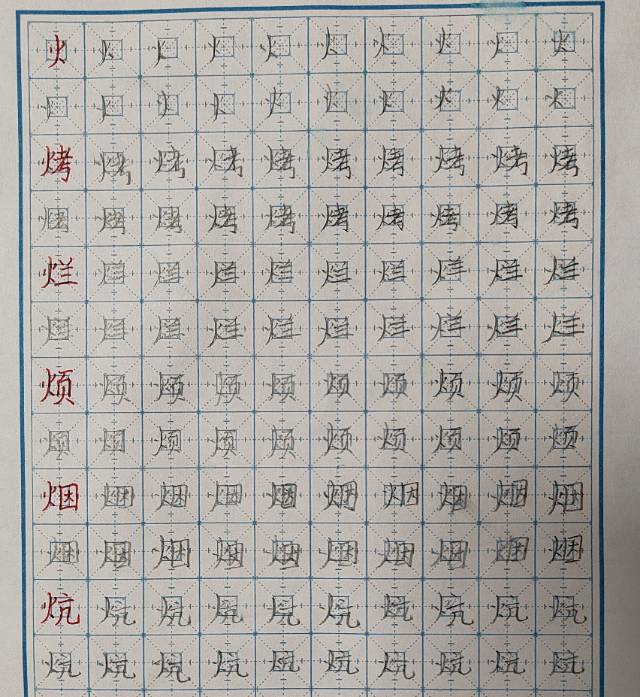 火火火火火火火火火火
火火火火火火火火火火
烤烤烤烤烤烤烤烤烤烤
烤烤烤烤烤烤烤烤烤烤
烂烂烂烂烂烂烂烂烂烂
烂烂烂烂烂烂烂烂烂烂
烦烦烦烦烦烦烦烦烦烦
烦烦烦烦烦烦烦烦烦烦
烟烟烟烟烟烟烟烟烟烟
烟烟烟烟烟烟烟烟烟烟
炕炕炕炕炕炕炕炕炕炕
炕炕炕炕炕炕炕炕炕炕